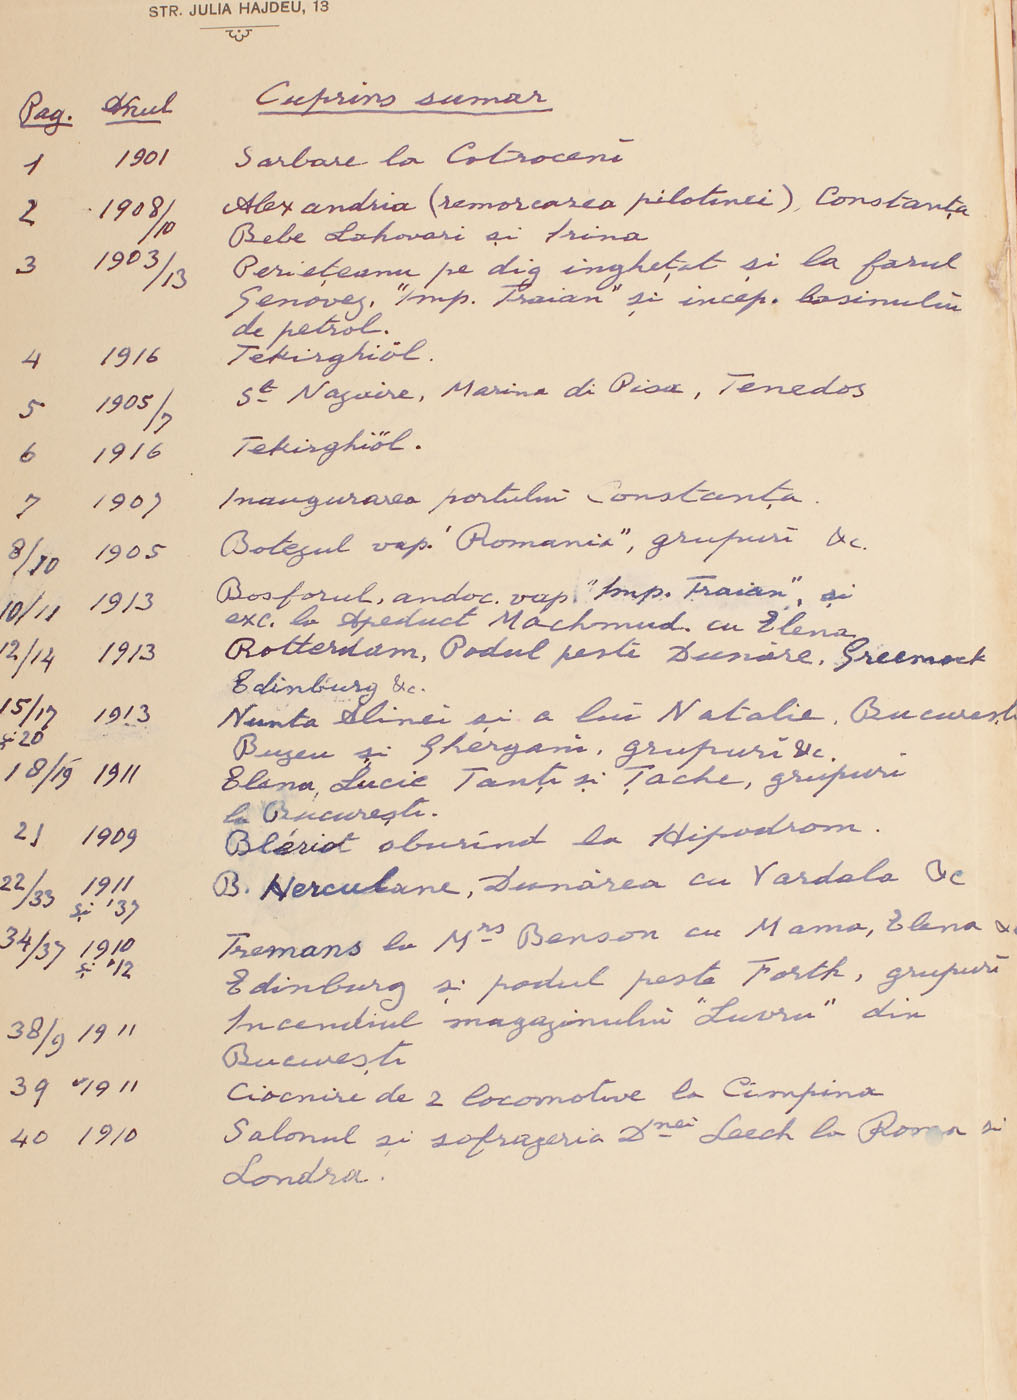 STR. JULIA HAJDEU, 13
Pag. Anul Cuprins sumar
1 1901 Sarbare la Cotroceni
2 1908/10 Alexandria (remorcarea pilotinei), Constanța
Bebe Lahovari și Irina
3 1903/13 Periețeanu pe dig inghețat și la farul
Genovez, "Imp. Traian" și incep. basinului
de petrol.
4 1916 Tekirghiöl.
5 1905/7 St Nazaire, Marina di Pisa, Tenedos
6 1916 Tekirghiöl.
7 1907 Inaugurarea portului Constanța.
8/10 1905 Botezul vap. "Romania", grupuri &c.
10/11 1913 Bosforul, andoc. vap. "Imp. Traian", și
exc. la Apeduct Machmud. cu Elena
12/14 1913 Rotterdam, Podul peste Dunăre, Greenock
Edinburg &c.
15/17 1913 Nunta Alinei și a lui Natalie, București
și 20 Buzeu și Ghergani, grupuri &c.
18/19 1911 Elena, Lucie Tanți și Tache, grupuri
la București.
21 1909 Blériot sburînd la Hipodrom.
22/33 1911 B. Herculane, Dunărea cu Vardala &c
și '37
34/37 1910 Tremans la Mrs Benson cu Mama, Elena &c
și '12 Edinburg și podul peste Forth, grupuri
38/9 1911 Incendiul magazinului "Luvru" din
București
39 1911 Ciocnire de 2 locomotive la Cîmpina
40 1910 Salonul și sofrageria Dnei Leech la Roma si
Londra.